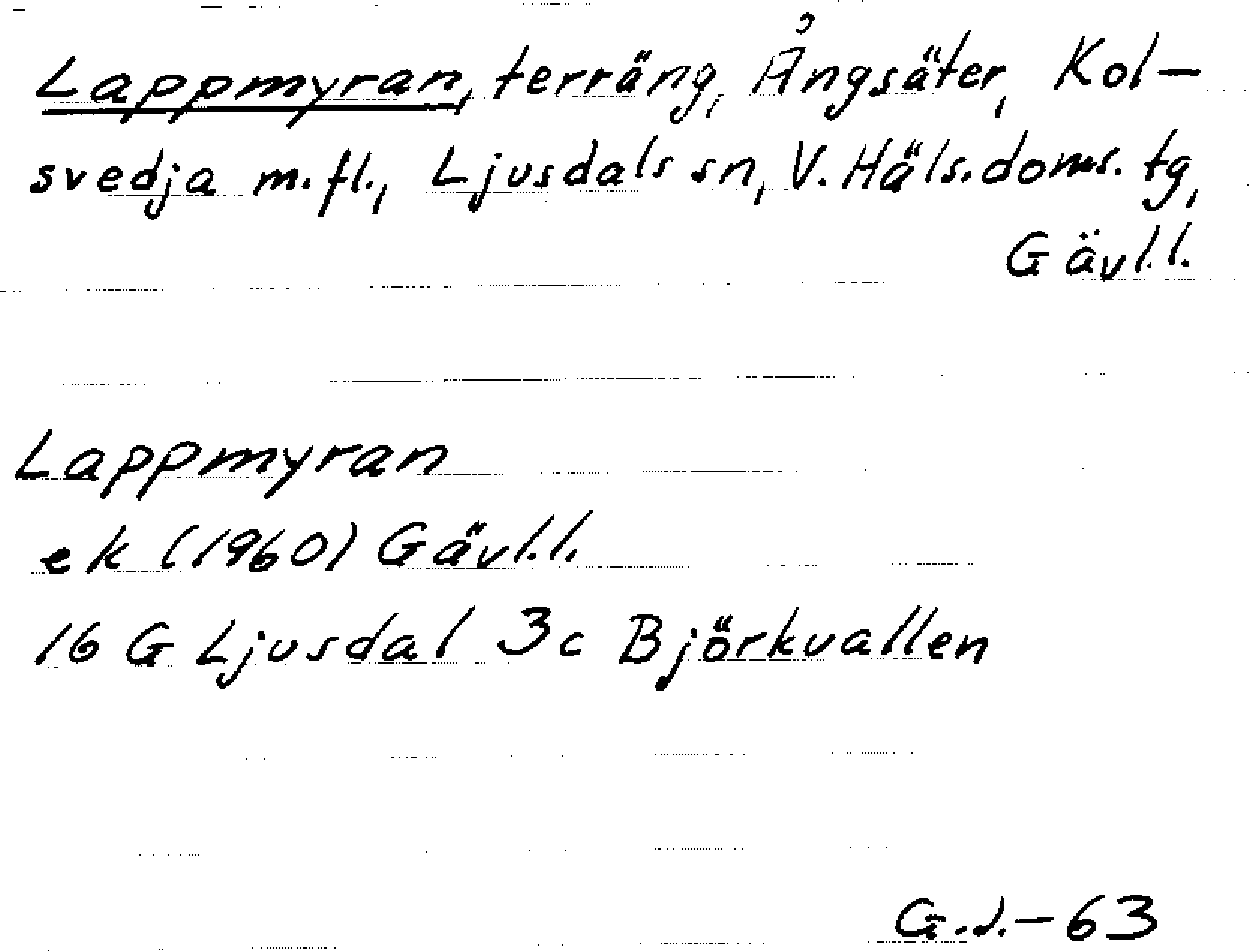 Lappmyran, terräng, Ångsäter, Kol-
svedja m.fl., Ljusdals sn, V. Häls.doms. tg,
Gävl.l.
Lappmyran
ek (1960) Gävl.l.
16 G Ljusdal 3c Björkvallen
G.J.-63